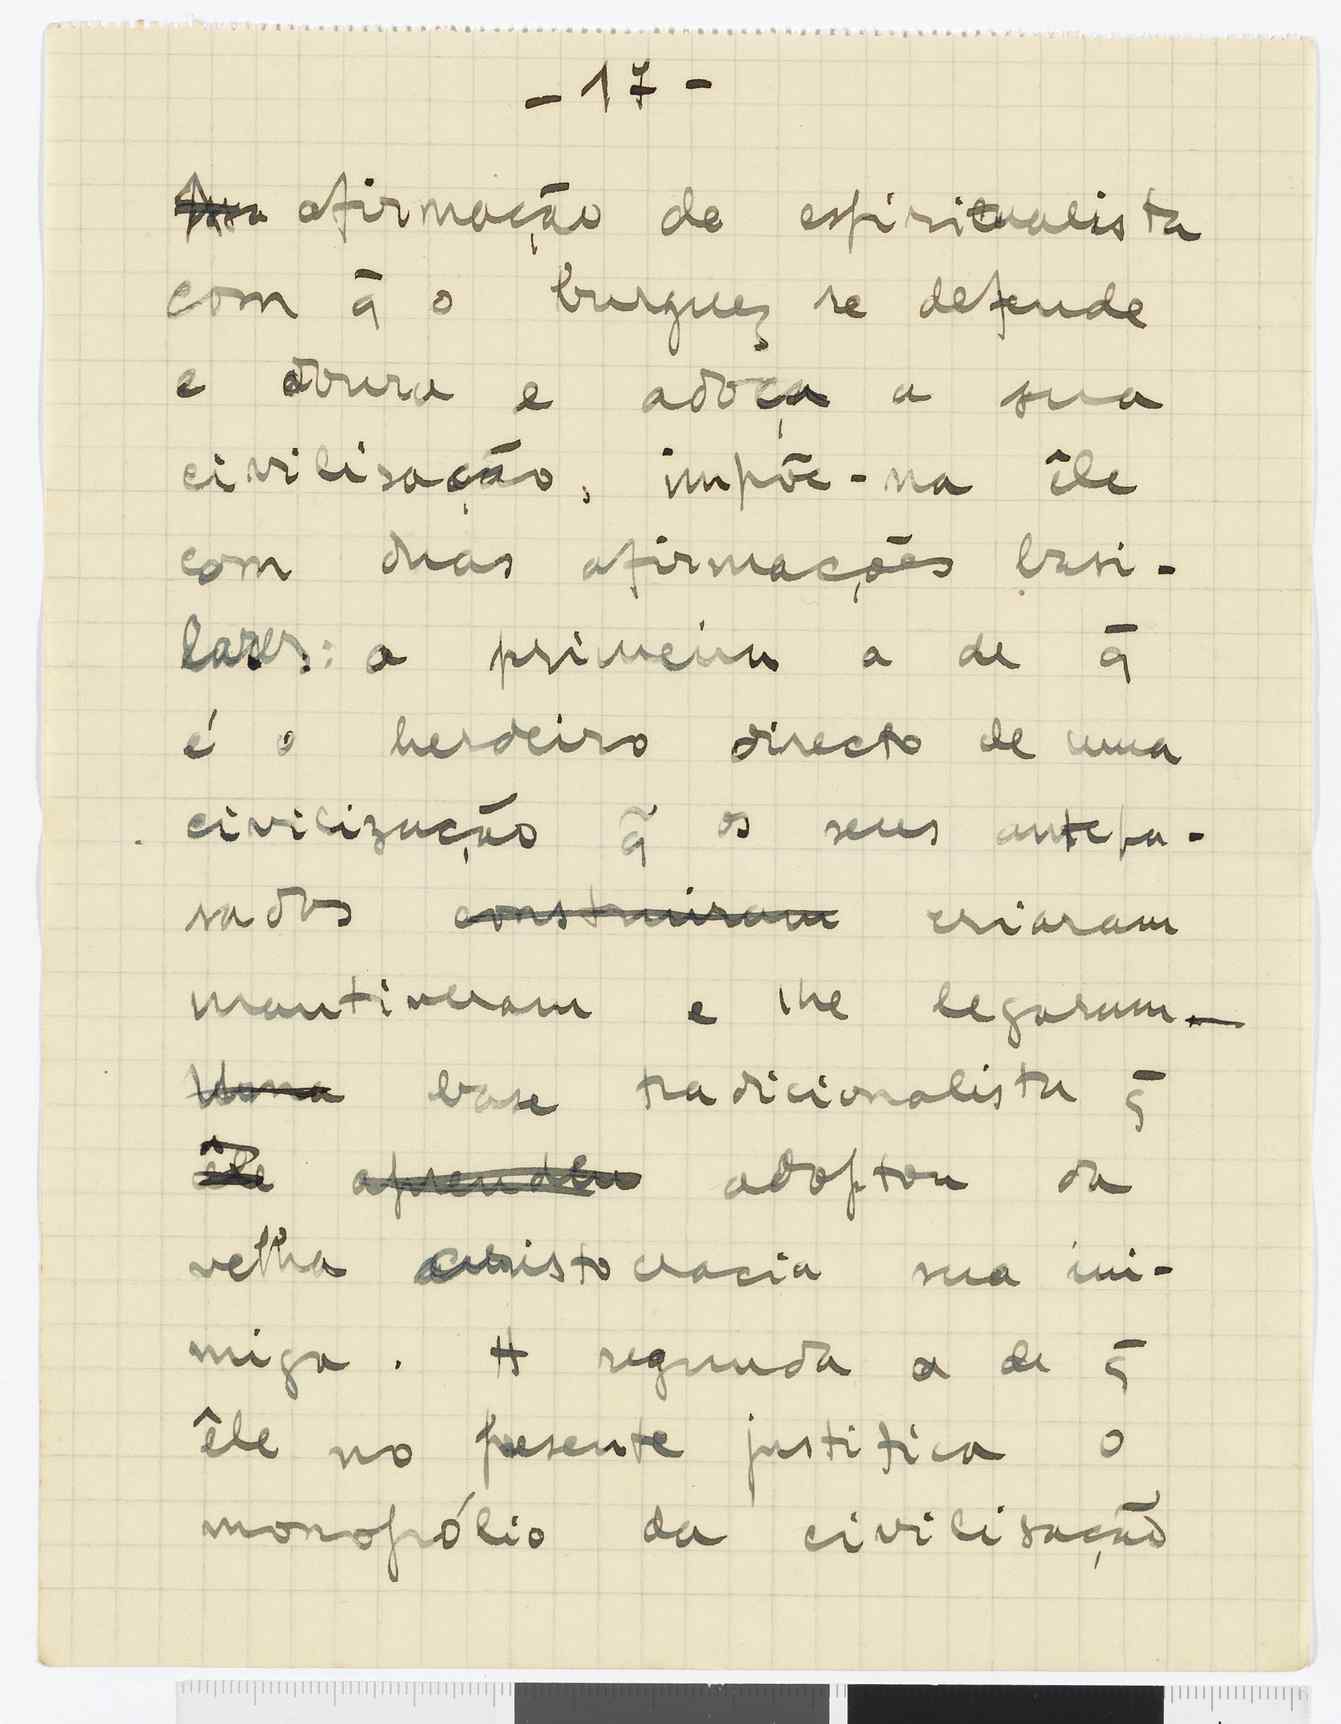 - 17 -
afirmação de espiritualista
com q̃ o burguez se defende
e doura e adoça a sua
civilisação, impõe-na êle
com duas afirmações basi-
lares: a primeira a de q̃
é o herdeiro directo de uma
civilização q̃ os seus antepa-
sados construiram criaram
mantiveram e lhe legaram_
Uma base tradicionalista q̃
êle aprendeu adoptou da
velha aristocracia sua ini-
miga. A segunda a de q̃
êle no presente justifica o
monopólio da civilisação